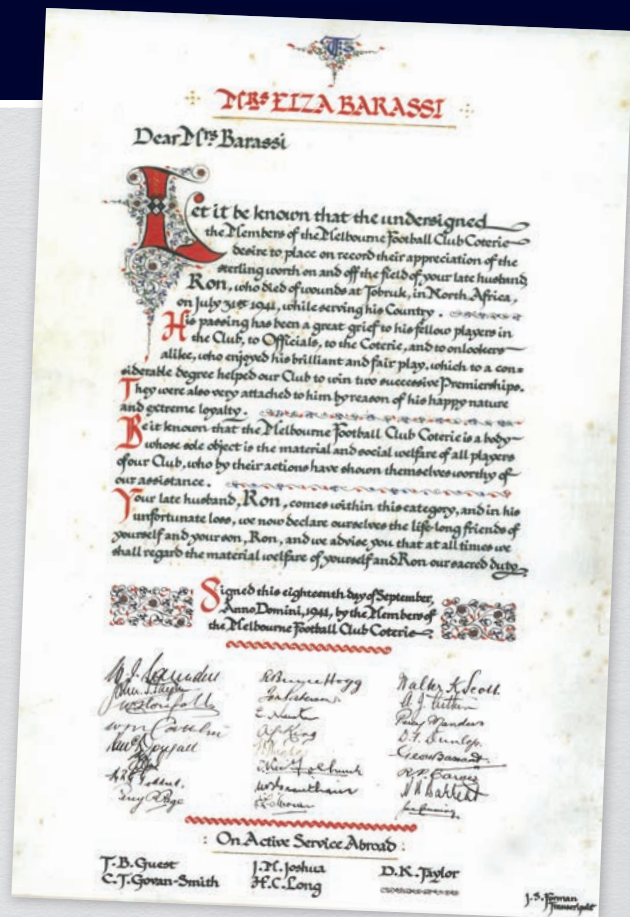 MRS ELZA BARASSI
Dear Mrs Barassi
Let it be known that the undersigned
the Members of the Melbourne Football Club Coterie
desire to place on record their appreciation of the
sterling worth on and off the field of your late husband,
Ron, who died of wounds at Tobruk, in North Africa,
on July 31st 1941, while serving his Country.
His passing has been a great grief to his fellow players in
the Club, to Officials, to the Coterie, and to onlookers
alike, who enjoyed his brilliant and fair play, which to a con-
siderable degree helped our Club to win two successive Premierships.
They were also very attached to him by reason of his happy nature
and extreme loyalty.
Be it known that the Melbourne Football Club Coterie is a body
whose sole object is the material and social welfare of all players
of our Club, who by their actions have shown themselves worthy of
our assistance.
Your late husband, Ron, comes within this category, and in his
unfortunate loss, we now declare ourselves the life-long friends of
yourself and your son, Ron, and we advise you that at all times we
shall regard the material welfare of yourself and Ron our sacred duty.
Signed this eighteenth day of September,
Anno Domini, 1941, by the Members of
the Melbourne Football Club Coterie
R Bruce Hogg
Walter K Scott
Percy Manders
D. F. Dunlop.
Percy P. Page
On Active Service Abroad:
T. B. Guest
J. M. Joshua
D. K. Taylor
C. T. Govan-Smith
H. C. Long
J. S. Forman